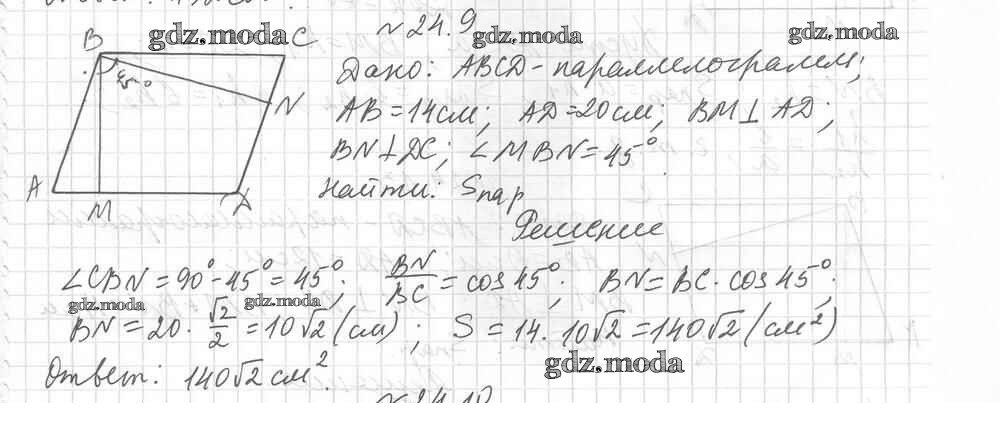 № 24.9
B
C
45°
N
A
M
Д
gdz.moda
gdz.moda
gdz.moda
Дано: ABCD - параллелограмм;
AB = 14 см; AD = 20 см; BM ⊥ AD;
BN ⊥ DC; ∠MBN = 45°
Найти: Sпар
Решение
∠CBN = 90° - 45° = 45°; BN/BC = cos 45°; BN = BC · cos 45°;
gdz.moda
gdz.moda
BN = 20 · √2/2 = 10√2 (см); S = 14 · 10√2 = 140√2 (см²)
gdz.moda
Ответ: 140√2 см².
№ 24.10